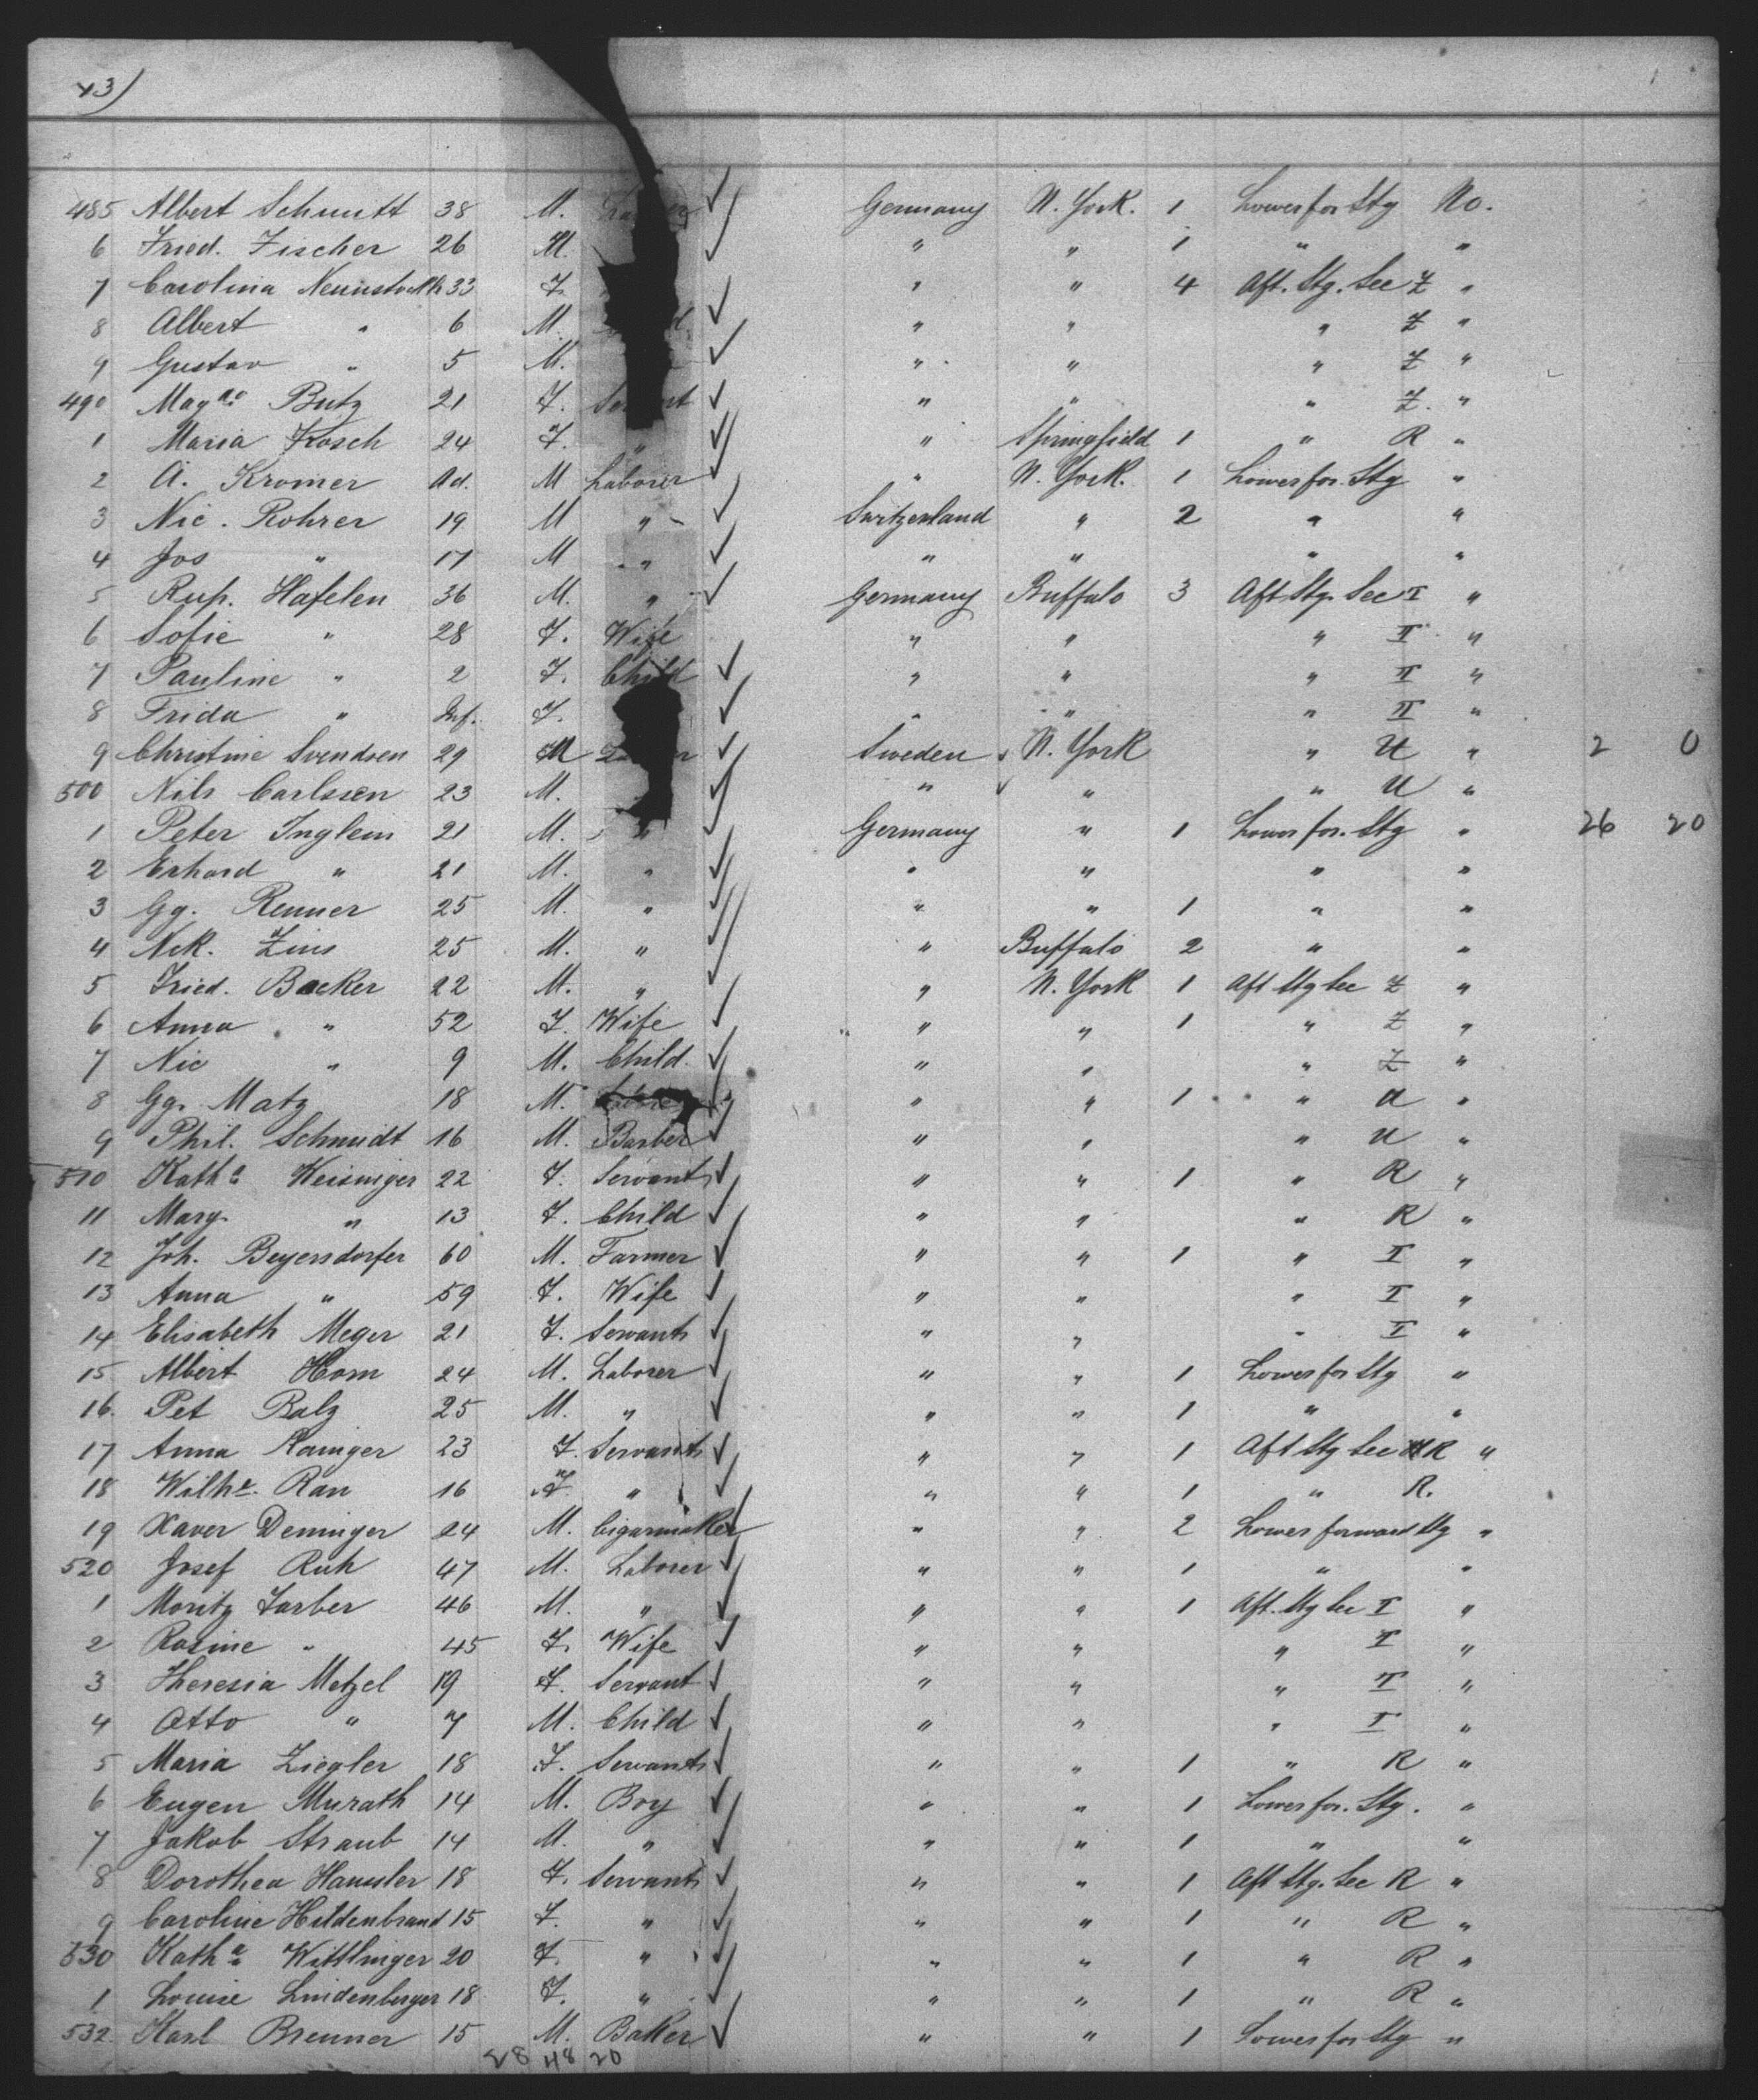 485 Albert Schmitt 38 M. Germany N. York. 1 Lower for Stg No.
6 Fried. Fischer 26 M. " " 1 " "
7 Carolina 33 F. " " 4 Aft. Stg. Sec Z "
8 Albert " 6 M. " " " Z "
9 Gustav " 5 M. " " " Z "
490 Butz 21 F. " " " Z. "
1 Maria Kosch 24 F. " " Springfield 1 " R "
2 A. Kromer Ad. M Laborer " N. York. 1 Lower for. Stg "
3 Nic. Rohrer 19 M " Switzerland " 2 " "
4 Jos " 17 M " " " " "
5 Rup. Hafelen 36 M. " Germany Buffalo 3 Aft Stg. Sec I "
6 Sofie " 28 F. Wife " " " II "
7 Pauline " 2 F. Child " " " II "
8 Frida " Inf. F. " " " II "
9 Christine Svendsen 29 M Sweden N. York " U " 2 0
500 Nils Carlssen 23 M. " " " U "
1 Peter Inglein 21 M. " Germany " 1 Lower for. Stg " 26 20
2 Erhard " 21 M. " " " " "
3 Gg. Renner 25 M. " " " 1 " "
4 Nik. Zins 25 M. " " Buffalo 2 " "
5 Fried. Backer 22 M. " " N. York 1 Aft Stg Sec Z "
6 Anna " 52 F. Wife " " 1 " Z "
7 Nic " 9 M. Child. " " " Z "
8 Gg. Matz 18 M. " " 1 " U "
9 Phil. Schmidt 16 M. Barber " " " U "
510 Katha Weisinger 22 F. Servant " " 1 " R "
11 Marg. " 13 F. Child " " " R "
12 Joh. Beyersdorfer 60 M. Farmer " " 1 " I "
13 Anna " 59 F. Wife " " " I "
14 Elisabeth Meger 21 F. Servant " " " I "
15 Albert Horn 24 M. Laborer " " 1 Lower for Stg "
16. Pet Balz 25 M. " " " 1 " "
17 Anna 23 F. Servant " " 1 Aft Stg Sec R "
18 Wilhe. Rau 16 F. " " " 1 " R.
19 Xaver Deminger 24 M. Cigarmaker " " 2 Lower forward Stg "
520 Josef Ruh 47 M. Laborer " " 1 " "
1 Moritz Farber 46 M. " " " 1 Aft. Stg Sec I "
2 Rosine " 45 F. Wife " " " I "
3 Theresia Metzel 19 F. Servant " " " I "
4 Otto " 7 M. Child " " " I "
5 Maria Ziegler 18 F. Servant " " 1 " R "
6 Eugen Murath 14 M. Boy " " 1 Lower for. Stg. "
7 Jakob Straub 14 M. " " " 1 " "
8 Dorothea Hausler 18 F. Servant " " 1 Aft Stg. Sec R "
9 Caroline Hildenbrand 15 F. " " " 1 " R "
530 Katha Wittlinger 20 F. " " " 1 " R "
1 Louise Lindenberger 18 F. " " " 1 " R "
532 Karl Brenner 15 M. Baker " " 1 Lower for Stg "
28 48 20